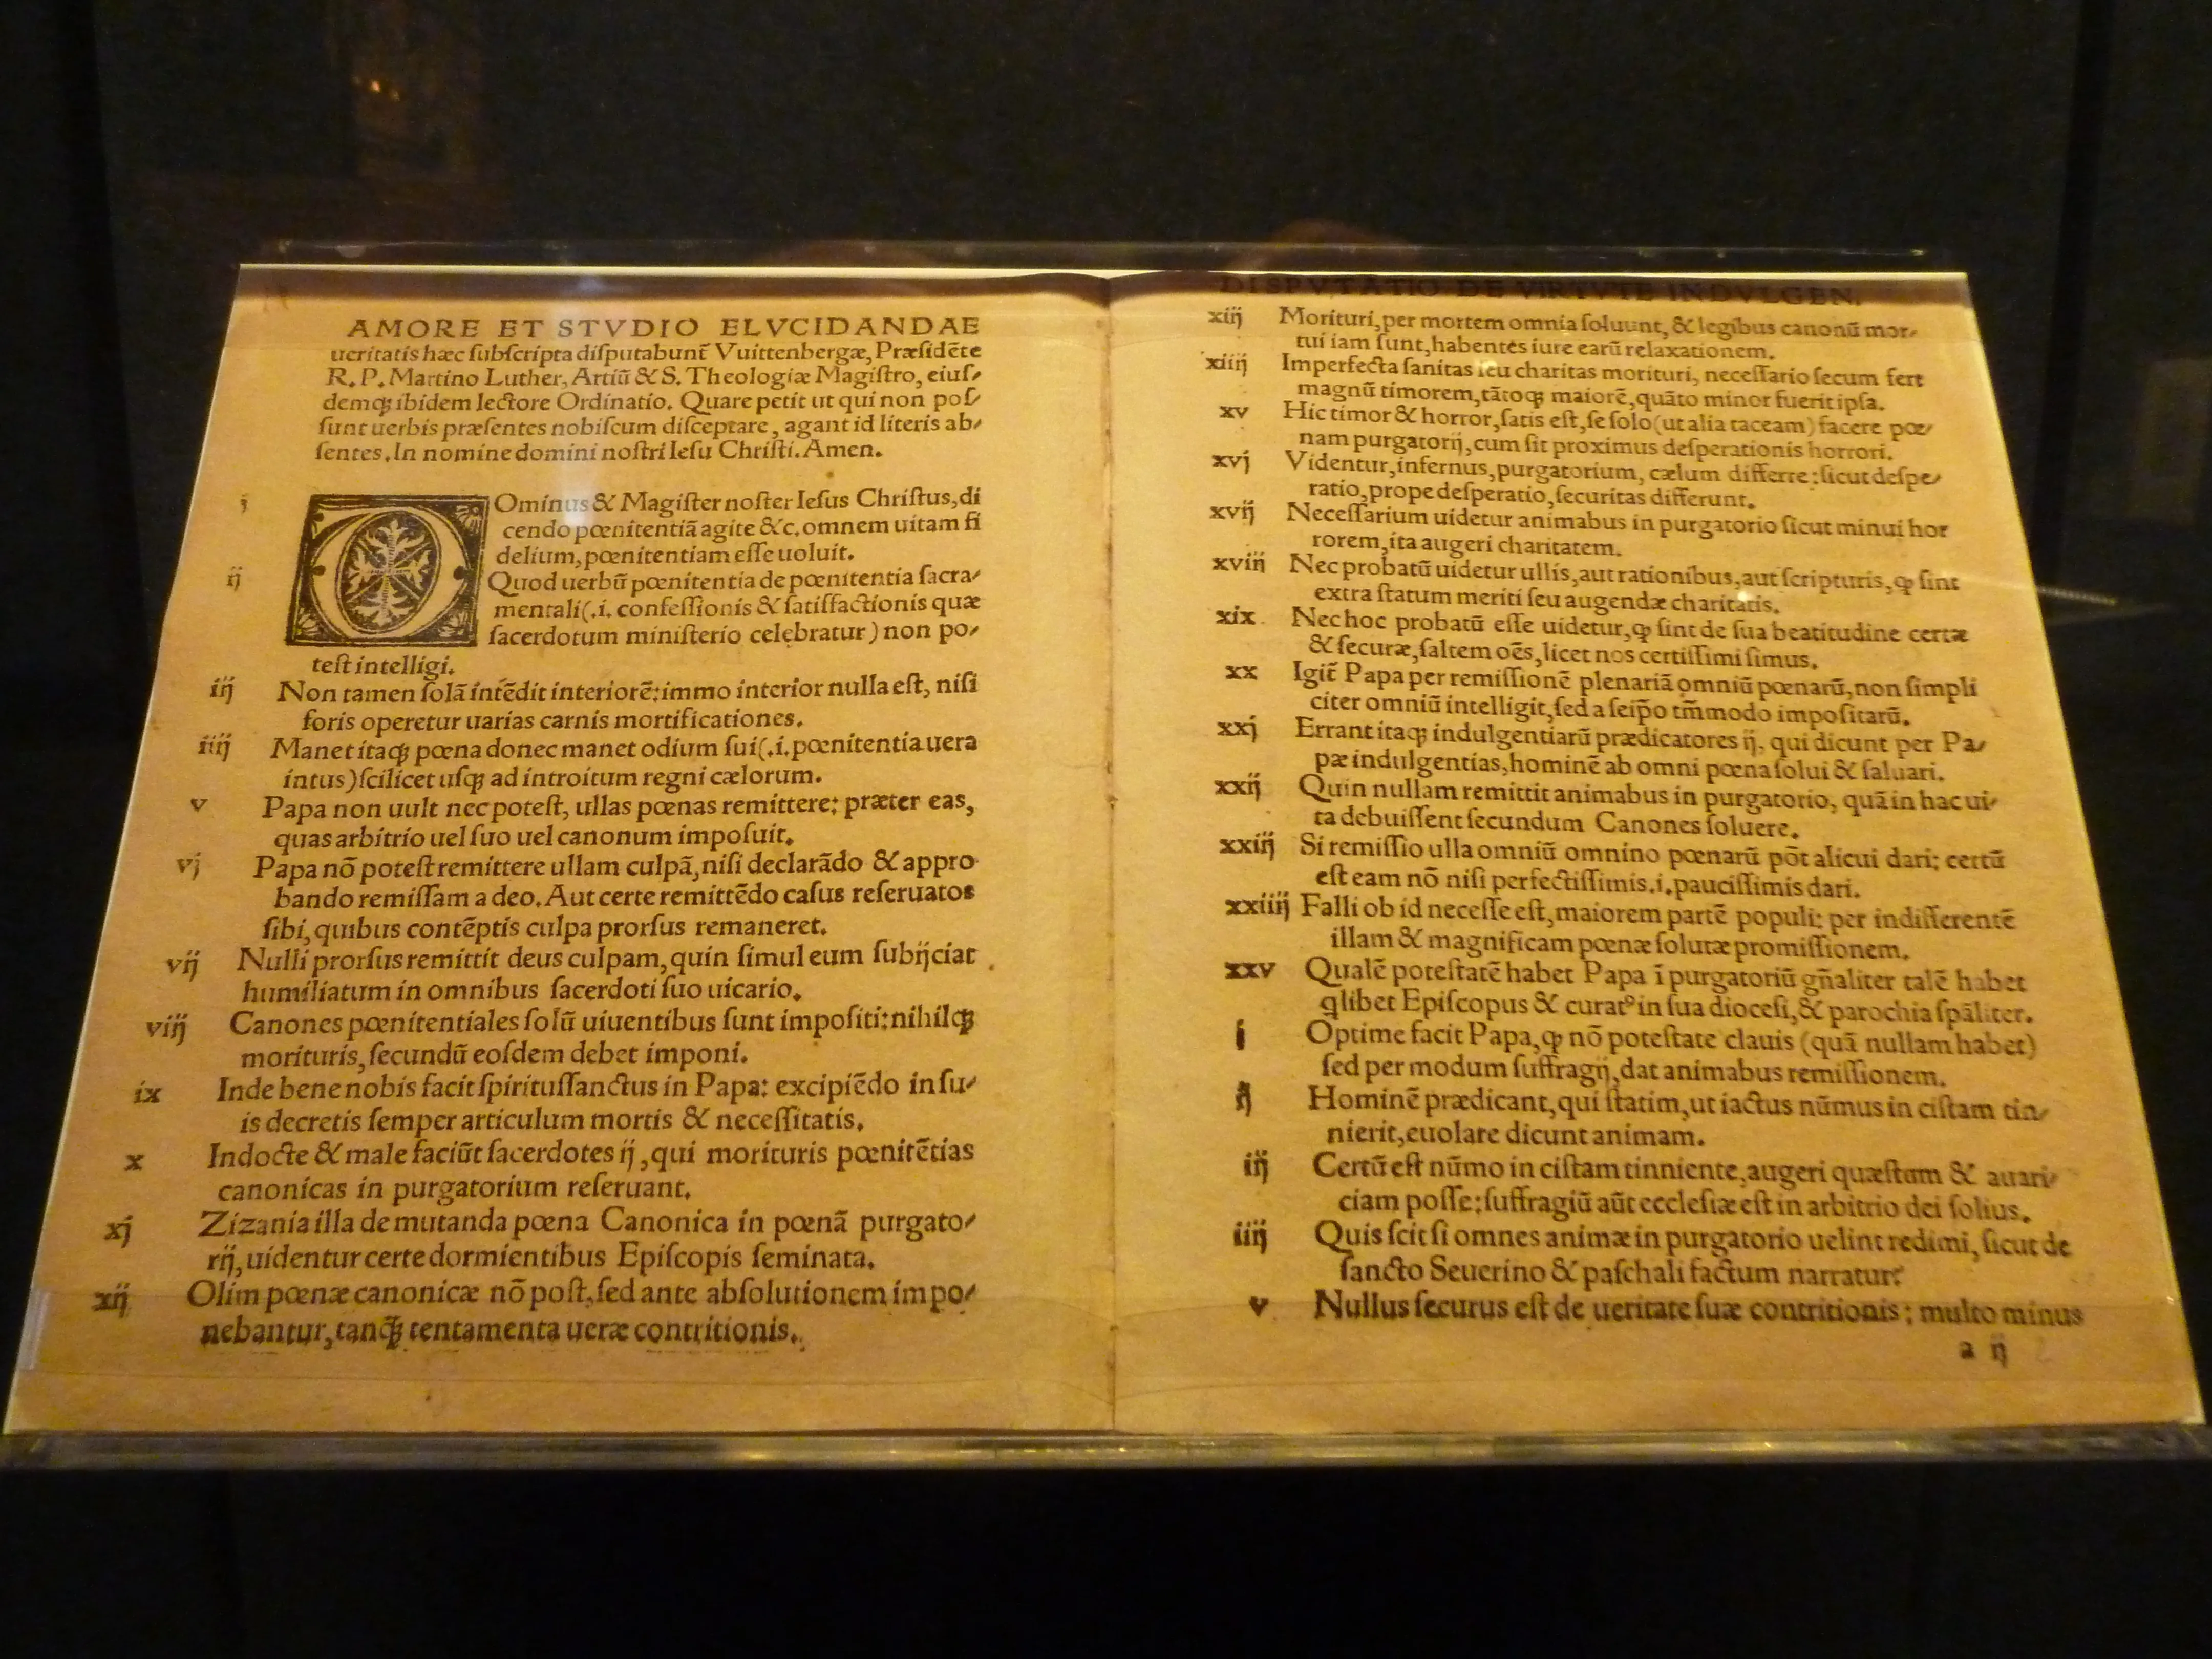 AMORE ET STVDIO ELVCIDANDAE
ueritatis hæc subscripta disputabunt̃ Vuittenbergæ, Præsidẽte
R. P. Martino Luther, Artiũ & S. Theologiæ Magistro, eius-
demqꝫ ibidem lectore Ordinatio. Quare petit ut qui non pos-
sunt uerbis præsentes nobiscum disceptare, agant id literis ab-
sentes. In nomine domini nostri Iesu Christi. Amen.
i Ominus & Magister noster Iesus Christus, di
cendo pœnitentiã agite &c. omnem uitam fi
delium, pœnitentiam esse uoluit.
ij Quod uerbũ pœnitentia de pœnitentia sacra-
mentali (.i. confessionis & satisfactionis quæ
sacerdotum ministerio celebratur) non po-
test intelligi.
iij Non tamen solã intẽdit interiorẽ: immo interior nulla est, nisi
foris operetur uarias carnis mortificationes.
iiij Manet itaqꝫ pœna donec manet odium sui (.i. pœnitentia uera
intus) scilicet usqꝫ ad introitum regni cælorum.
v Papa non uult nec potest, ullas pœnas remittere: præter eas,
quas arbitrio uel suo uel canonum imposuit.
vj Papa nõ potest remittere ullam culpã, nisi declarãdo & appro
bando remissam a deo. Aut certe remittẽdo casus reseruatos
sibi, quibus contẽptis culpa prorsus remaneret.
vij Nulli prorsus remittit deus culpam, quin simul eum subijciat
humiliatum in omnibus sacerdoti suo uicario.
viij Canones pœnitentiales solũ uiuentibus sunt impositi: nihilqꝫ
morituris, secundũ eosdem debet imponi.
ix Inde bene nobis facit spiritussanctus in Papa: excipiẽdo in su-
is decretis semper articulum mortis & necessitatis.
x Indocte & male faciũt sacerdotes ij, qui morituris pœnitẽtias
canonicas in purgatorium reseruant.
xj Zizania illa de mutanda pœna Canonica in pœnã purgato-
rij, uidentur certe dormientibus Episcopis seminata.
xij Olim pœnæ canonicæ nõ post, sed ante absolutionem impo-
nebantur, tanqꝫ tentamenta ueræ contritionis.
DISPVTATIO DE VIRTVTE INDVLGEN.
xiij Morituri, per mortem omnia soluunt, & legibus canonũ mor-
tui iam sunt, habentes iure earũ relaxationem.
xiiij Imperfecta sanitas seu charitas morituri, necessario secum fert
magnũ timorem, tãtoqꝫ maiorẽ, quãto minor fuerit ipsa.
xv Hic timor & horror, satis est, se solo (ut alia taceam) facere pœ-
nam purgatorij, cum sit proximus desperationis horrori.
xvj Videntur, infernus, purgatorium, cælum differre: sicut despe-
ratio, prope desperatio, securitas differunt.
xvij Necessarium uidetur animabus in purgatorio sicut minui hor
rorem, ita augeri charitatem.
xviij Nec probatũ uidetur ullis, aut rationibus, aut scripturis, ꝙ sint
extra statum meriti seu augendæ charitatis.
xix Nec hoc probatũ esse uidetur, ꝙ sint de sua beatitudine certæ
& securæ, saltem oẽs, licet nos certissimi simus.
xx Igit̃ Papa per remissionẽ plenariã omniũ pœnarũ, non simpli
citer omniũ intelligit, sed a seip̃o tm̃modo impositarũ.
xxj Errant itaqꝫ indulgentiarũ prædicatores ij, qui dicunt per Pa-
pæ indulgentias, hominẽ ab omni pœna solui & saluari.
xxij Quin nullam remittit animabus in purgatorio, quã in hac ui-
ta debuissent secundum Canones soluere.
xxiij Si remissio ulla omniũ omnino pœnarũ põt alicui dari: certũ
est eam nõ nisi perfectissimis .i. paucissimis dari.
xxiiij Falli ob id necesse est, maiorem partẽ populi: per indifferentẽ
illam & magnificam pœnæ solutæ promissionem.
xxv Qualẽ potestatẽ habet Papa ĩ purgatoriũ gñaliter talẽ habet
qlibet Episcopus & curatꝰ in sua diocesi, & parochia spãliter.
i Optime facit Papa, ꝙ nõ potestate clauis (quã nullam habet)
sed per modum suffragij, dat animabus remissionem.
ij Hominẽ prædicant, qui statim, ut iactus nũmus in cistam tin-
nierit, euolare dicunt animam.
iij Certũ est nũmo in cistam tinniente, augeri quæstum & auari-
ciam posse: suffragiũ aũt ecclesiæ est in arbitrio dei solius.
iiij Quis scit si omnes animæ in purgatorio uelint redimi, sicut de
sancto Seuerino & paschali factum narratur?
v Nullus securus est de ueritate suæ contritionis; multo minus
a ij